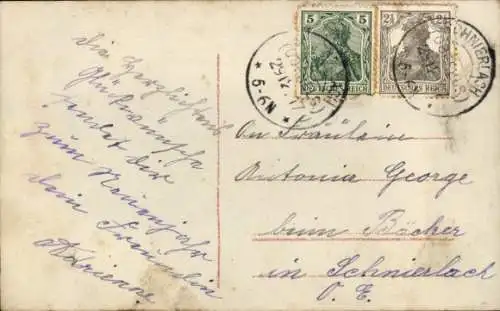 Die herzlichsten
Glückwünsche
sendet dir
zum Neuenjahr
dein Freundin
Adrienne
5
DEUTSCHES REICH
2½
DEUTSCHES REICH
SCHNIERLACH
5-6 N
An Fräulein
Antonia George
beim Bäcker
in Schnierlach
O. E.